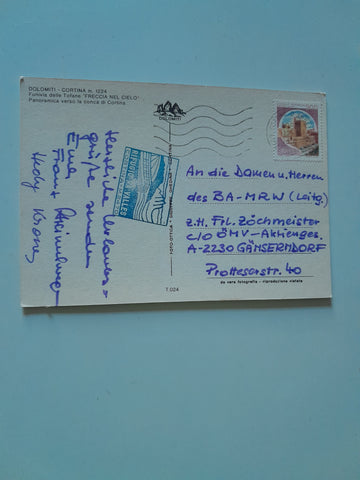 DOLOMITI - CORTINA m. 1224
Funivia delle Tofane "FRECCIA NEL CIELO"
Panoramica verso la conca di Cortina
DOLOMITI
Herzliche Urlaubs=
grüße senden
Eure
Franz
Hedy
RIFUGIO
An die Damen u. Herren
des BA-MRW (Leitg.)
z.H. Frl. Zöchmeister
c/o ÖMV-Aktienges.
A-2230 GÄNSERNDORF
Protteserstr. 40
da vera fotografia - riproduzione vietata
T 024